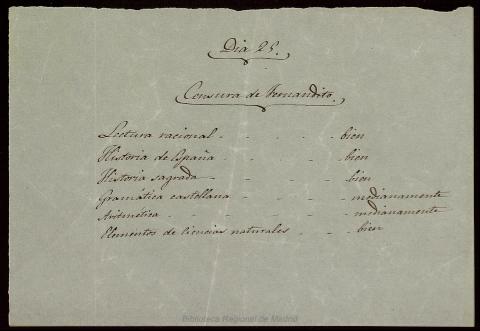 Dia 25.
Censura de Fernandito.
Lectura racional - - - - - bien
Historia de España - - - - - bien
Historia sagrada - - - - - bien
Gramática castellana - - - - medianamente
Aritmética - - - - - - medianamente
Elementos de ciencias naturales - - - bien
Biblioteca Regional de Madrid